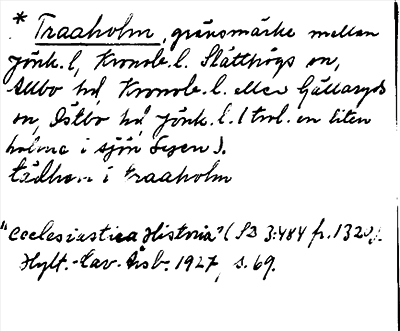 * Traaholm, gränsmärke mellan
Jönk. l, Kronob. l. Slätthögs sn,
Allbo hd, Kronob. l. eller Gällaryds
sn, Östbo hd Jönk. l. (trol. en liten
holme i sjön
i traaholm
"Ecclesiastica Historia" (SD 3:484 fr. 1320).
Hylt.-Cav. Årsb. 1927, s. 69.